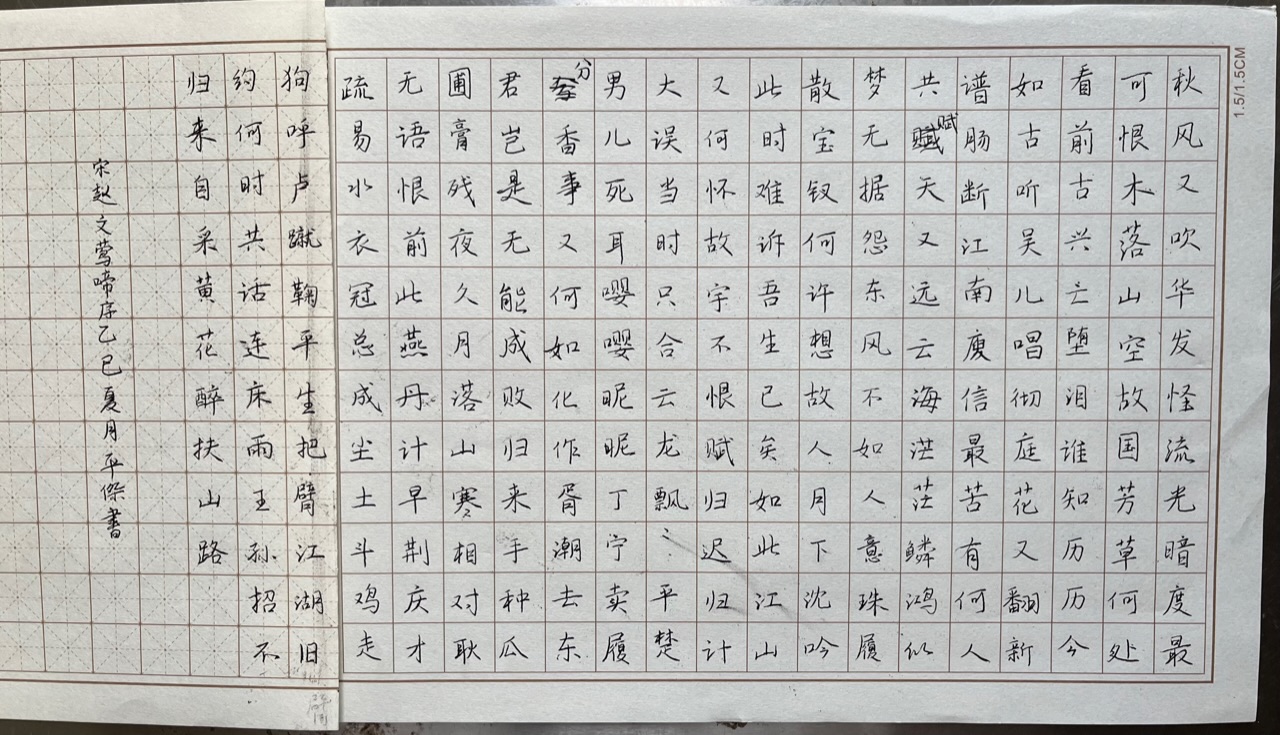 秋风又吹华发怪流光暗度最
可恨木落山空故国芳草何处
看前古兴亡堕泪谁知历历今
如古听吴儿唱彻庭花又翻新
谱肠断江南庾信最苦有何人
共赋赋天又远云海茫茫鳞鸿似
梦无据怨东风不如人意珠履
散宝钗何许想故人月下沈吟
此时难诉吾生已矣如此江山
又何怀故宇不恨赋归迟归计
大误当时只合云龙飘々平楚
男儿死耳嘤嘤昵昵丁宁卖履
分香事又何如化作胥潮去东
君岂是无能成败归来手种瓜
圃膏残夜久月落山寒相对耿
无语恨前此燕丹计早荆庆才
疏易水衣冠总成尘土斗鸡走
狗呼卢蹴鞠平生把臂江湖旧
约何时共话连床雨王孙招不
归来自采黄花醉扶山路
宋赵文莺啼序乙巳夏月平傑書
1.5/1.5CM